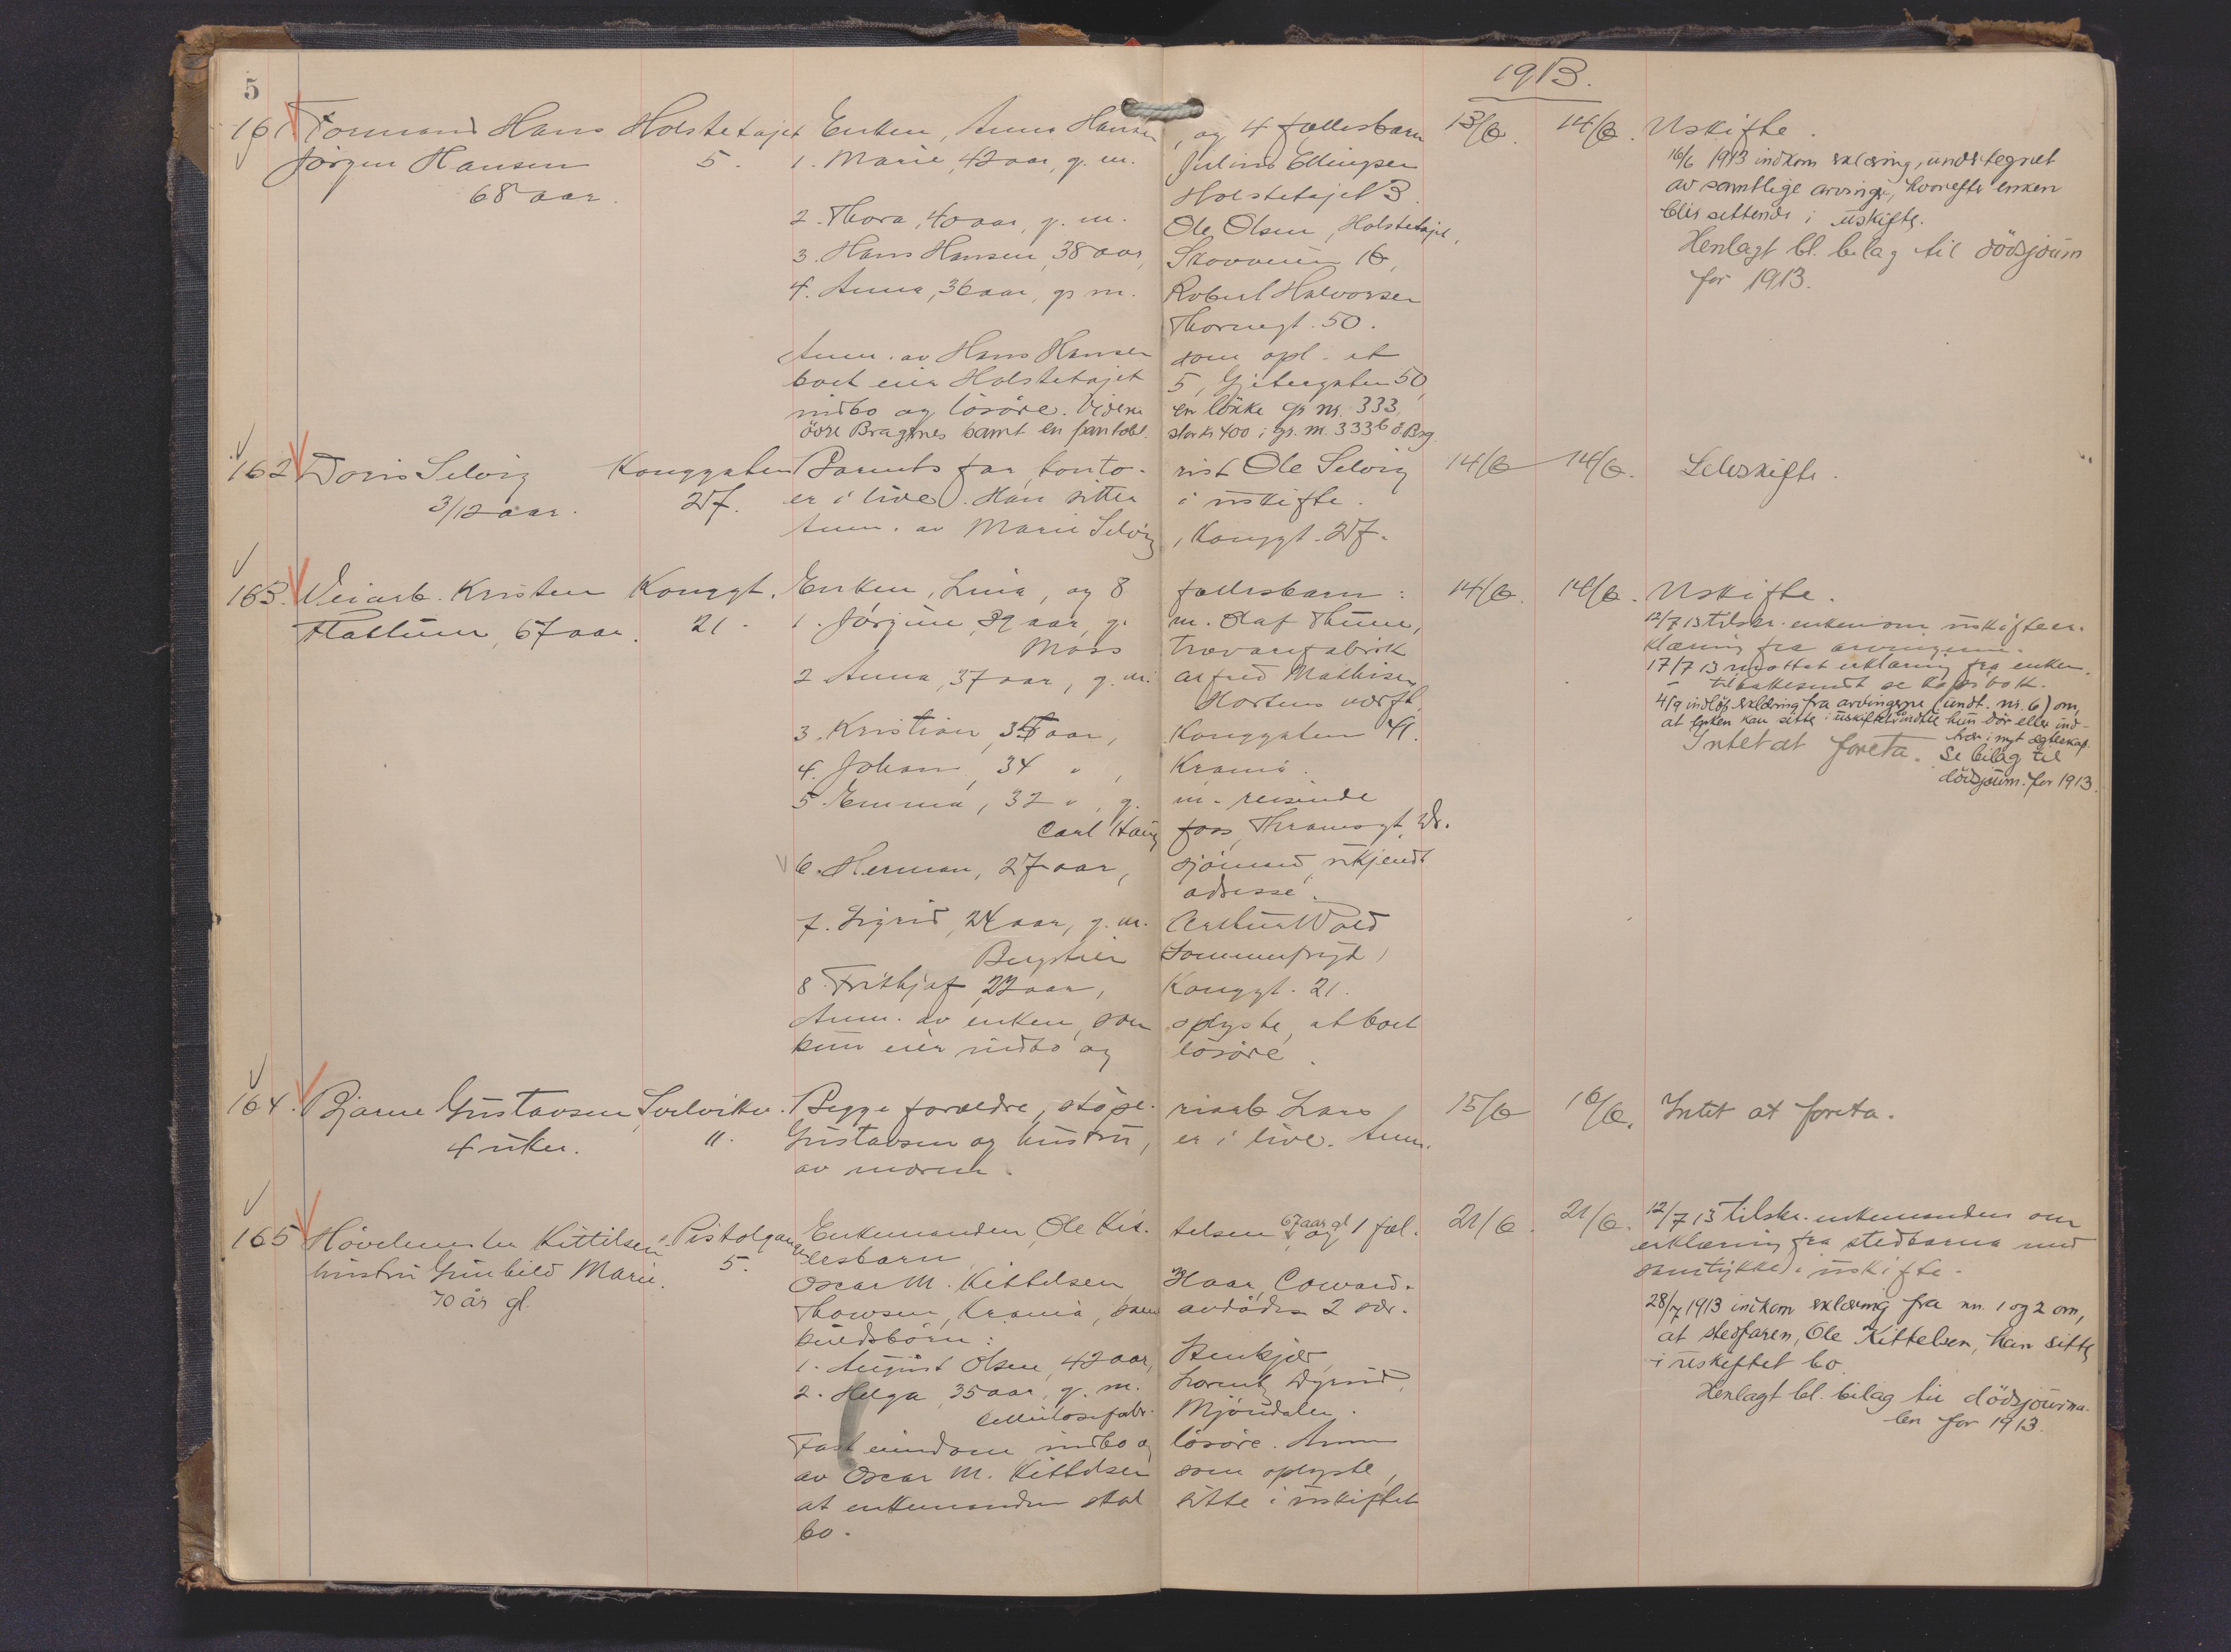 5
1913.
161 Formand Hans Holstetajet Enken, Anna Hansen, og 4 fællesbarn 13/6. 14/6. Uskifte.
Jörgen Hansen 5. 1. Marie, 42 aar, g. m. Julius Ellingsen
68 aar. Holstetajet 3.
2. Thora, 40 aar, g. m. Ole Olsen, Holstetajet,
3. Hans Hansen, 38 aar, Skovveien 16,
4. Anna, 36 aar, g. m. Robert Halvorsen
Thornegt. 50.
Anm. av Hans Hansen som opl. at
boet eier Holstetajet 5, Gjetergaten 50,
indbo og lösöre. Videre en lökke gr. nr. 333,
övre Bragernes samt en pantobl. stor kr 400 i gr. nr. 333 b ö. Brg.
16/6 1913 indkom erklæring, undertegnet
av samtlige arvinger, hvorefter enken
blir sittende i uskifte.
Henlagt bl. bilag til dödsjourn
for 1913.
162 Doris Selvig Konggaten Barnets far, konto- rist Ole Selvig 14/6 14/6. Selvskifte.
3/12 aar. 27. er i live. Han sitter i uskifte.
Anm. av Marie Selvig, Konggt. 27.
163. Veiarb. Kristen Konggt. Enken, Lina, og 8 fællesbarn: 14/6. 14/6. Uskifte.
Flattum, 67 aar. 21. 1. Jörgine, 39 aar, g. m. Olaf Thune,
Moss Trævarefabrik
2 Anna, 37 aar, g. m. Alfred Mathisen,
Hortens værft,
3. Kristian, 35 aar, Konggaten 41.
4. Johan, 34 " , Krania.
5. Emma, 32 " , g. m. reisende
Carl Haug foss, Thramsgt.
6. Herman, 27 aar, sjömand, ukjendt
adresse.
7. Sigrid, 24 aar, g. m. Arthur Wold
Bergstien (Sommerfryd)
8. Frithjof 22 aar, Konggt. 21.
Anm. av enken, som oplyste, at boet
kun eier indbo og lösöre.
12/7 13 tilskr. enken om uskifteer-
klæring fra arvingerne.
17/7 13 mottat erklæring fra enken.
tilbakesendt se kopibok.
4/9 indlöp erklæring fra arvingerne (undt. nr. 6) om,
at enken kan sitte i uskiftet indtil hun dör eller ind-
træ i nyt ægteskap.
Intet at foreta. Se bilag til
dödsjourn. for 1913.
164. Bjarne Gustavsen, Solviken. Begge forældre, stöpe- riarb Lars 15/6 16/6. Intet at foreta.
4 uker. 11. Gustavsen og hustru, er i live. Anm.
av moren.
165 Hövelmester Kittilsens Pistolgangen Enkemanden, Ole Kit- telsen, 67 aar gl og 1 fæl- 21/6. 21/6.
hustru Gunhild Marie. 5. lesbarn,
70 år gl. Oscar M. Kittelsen
Thowsen, Krania, samt avdödes 2 sær-
kuldsbörn:
1. August Olsen, 42 aar, Stenkjer,
2. Helga, 35 aar, g. m. Lorentz
Cellulosefabr. Mjöndalen.
Fast eiendom indbo og lösöre. Anm
av Oscar M. Kittelsen som oplyste,
at enkemanden skal sitte i uskiftet
bo.
12/7 13 tilskr. enkemanden om
erklæring fra stedbarna med
samtykke i uskifte.
28/7 1913 indkom erklæring fra nr. 1 og 2 om,
at stedfaren, Ole Kittelsen, kan sitte
i uskiftet bo.
Henlagt bl. bilag til dödsjourna-
len for 1913.